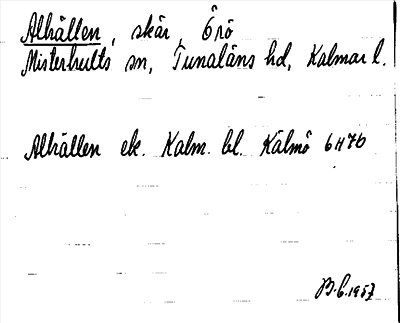 Alhällen, skär, Örö
Misterhults sn, Tunaläns hd, Kalmar l.
Alhällen ek. Kalm. bl. Kälmö 6H7b
B.E. 1957